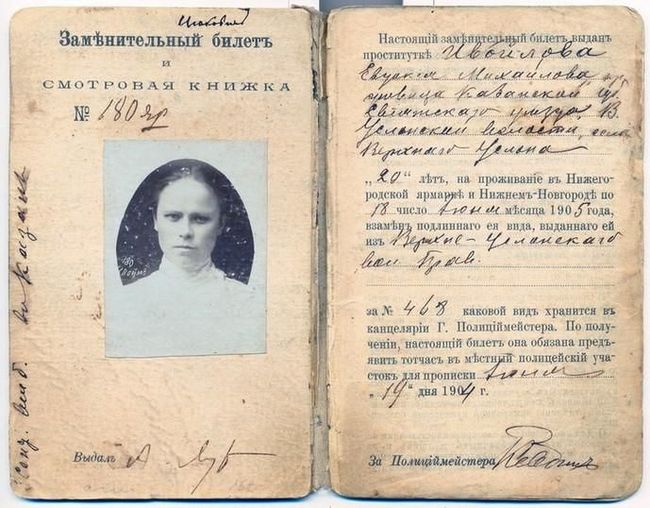 Замѣнительный билетъ
и
СМОТРОВАЯ КНИЖКА
№ 180 яр
180
Выдалъ
Настоящій замѣнительный билетъ выданъ
проституткѣ Ивойлова
Евдокія Михайлова
Казанской губ
Свіяжскаго уѣзда, В.
Услонской волости, села
Верхняго Услона
„20“ лѣтъ, на проживаніе въ Нижего-
родской ярмаркѣ и Нижнемъ-Новгородѣ по
18 число Іюня мѣсяца 1905 года,
взамѣнъ подлиннаго ея вида, выданнаго ей
изъ Верхне-Услонскаго
вол Прав.
за № 468 каковой видъ хранится въ
канцеляріи Г. Полиціймейстера. По полу-
ченіи, настоящій билетъ она обязана предъ-
явить тотчасъ въ мѣстный полицейскій уча-
стокъ для прописки Іюня
„19“ дня 1904 г.
За Полиціймейстера